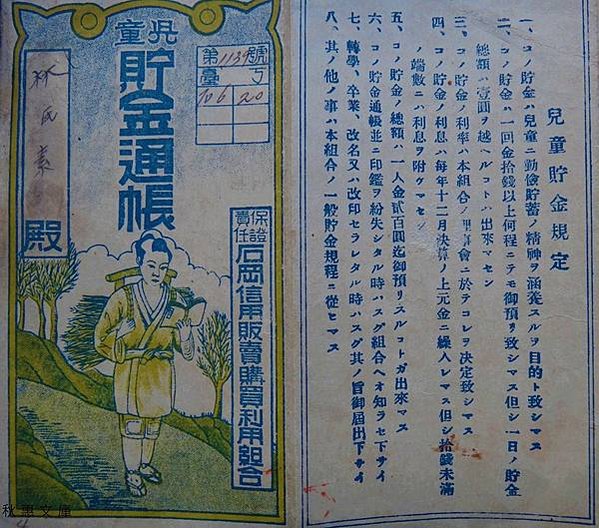 児童
貯金通帳
第1134號
林氏素
殿
保證
責任
石岡信用販賣購買利用組合
秋惠文庫
兒童貯金規定
一、コノ貯金ハ兒童ニ勤儉貯蓄ノ精神ヲ涵養スルヲ目的ト致シマス
二、コノ貯金ハ一回金拾錢以上何程ニテモ御預リ致シマス但シ一日ノ貯金
總額ハ壹圓ヲ越ヘルコトハ出來マセン
三、コノ貯金ノ利率ハ本組合ノ理事會ニ於テコレヲ決定致シマス
四、コノ貯金ノ利息ハ每年十二月決算ノ上元金ニ繰入レマス但シ拾錢未滿
ノ端數ニハ利息ヲ附ケマセン
五、コノ貯金ノ總額ハ一人金貳百圓迄御預リスルコトガ出來マス
六、コノ貯金通帳並ニ印鑑ヲ紛失シタル時ハスグ組合ヘオ知ラセ下サイ
七、轉學、卒業、改名又ハ改印セラレタル時ハスグ其ノ旨御屆出下サイ
八、其ノ他ノ事ハ本組合ノ一般貯金規程ニ從ヒマス